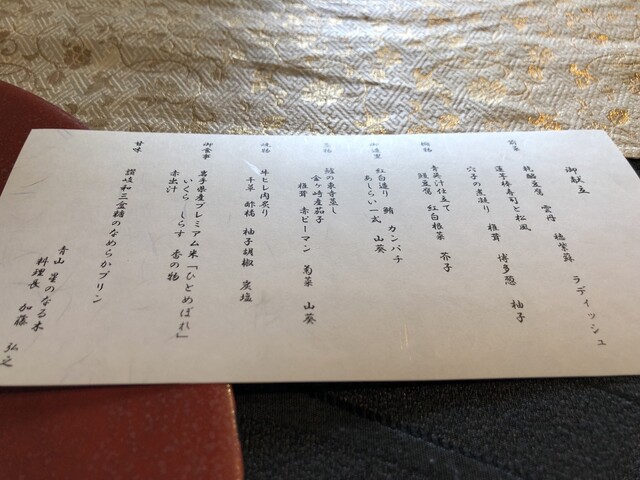 御献立
前菜
乾酪豆腐 雲丹 穂紫蘇 ラディッシュ
蓮芋棒寿司と松風
穴子の煮凝り 椎茸 博多葱 柚子
椀物
青美汁仕立て
鱧豆腐 紅白根菜 芥子
御造里
紅白造り 鮪 カンパチ
あしらい一式 山葵
鱧の東寺蒸し
金ヶ崎産茄子
椎茸 赤ピーマン 菊菜 山葵
焼物
牛ヒレ肉炙り
千草 酢橘 柚子胡椒 炭塩
御食事
岩手県産プレミアム米「ひとめぼれ」
いくら しらす 香の物
赤出汁
甘味
讃岐和三盆糖のなめらかプリン
青山 星のなる木
料理長 加藤 弘之